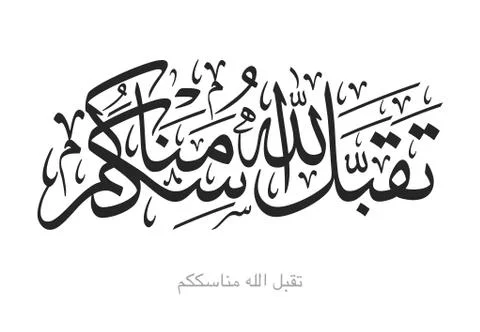 تقبل الله مناسككم
تقبل الله مناسككم